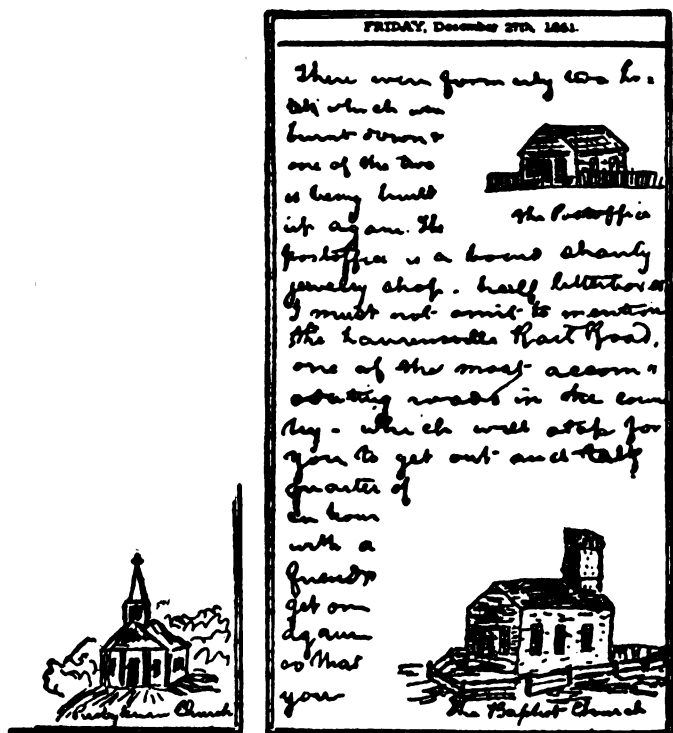 FRIDAY, December 27th, 1861.
There were from only two ho=
tels which were
burnt down &
one of the two
is being built
up again. The
postoffice is a board shanty
jewelry shop. half letterboxes
I must not omit to mention
the Laurensville Rail Road,
one of the most accom=
odating roads in the coun
try - which will stop for
you to get out and talk
quarter of
an hour
with a
friend &
get on
again
so that
you
the Postoffice
The Baptist Church
Presbyterian Church